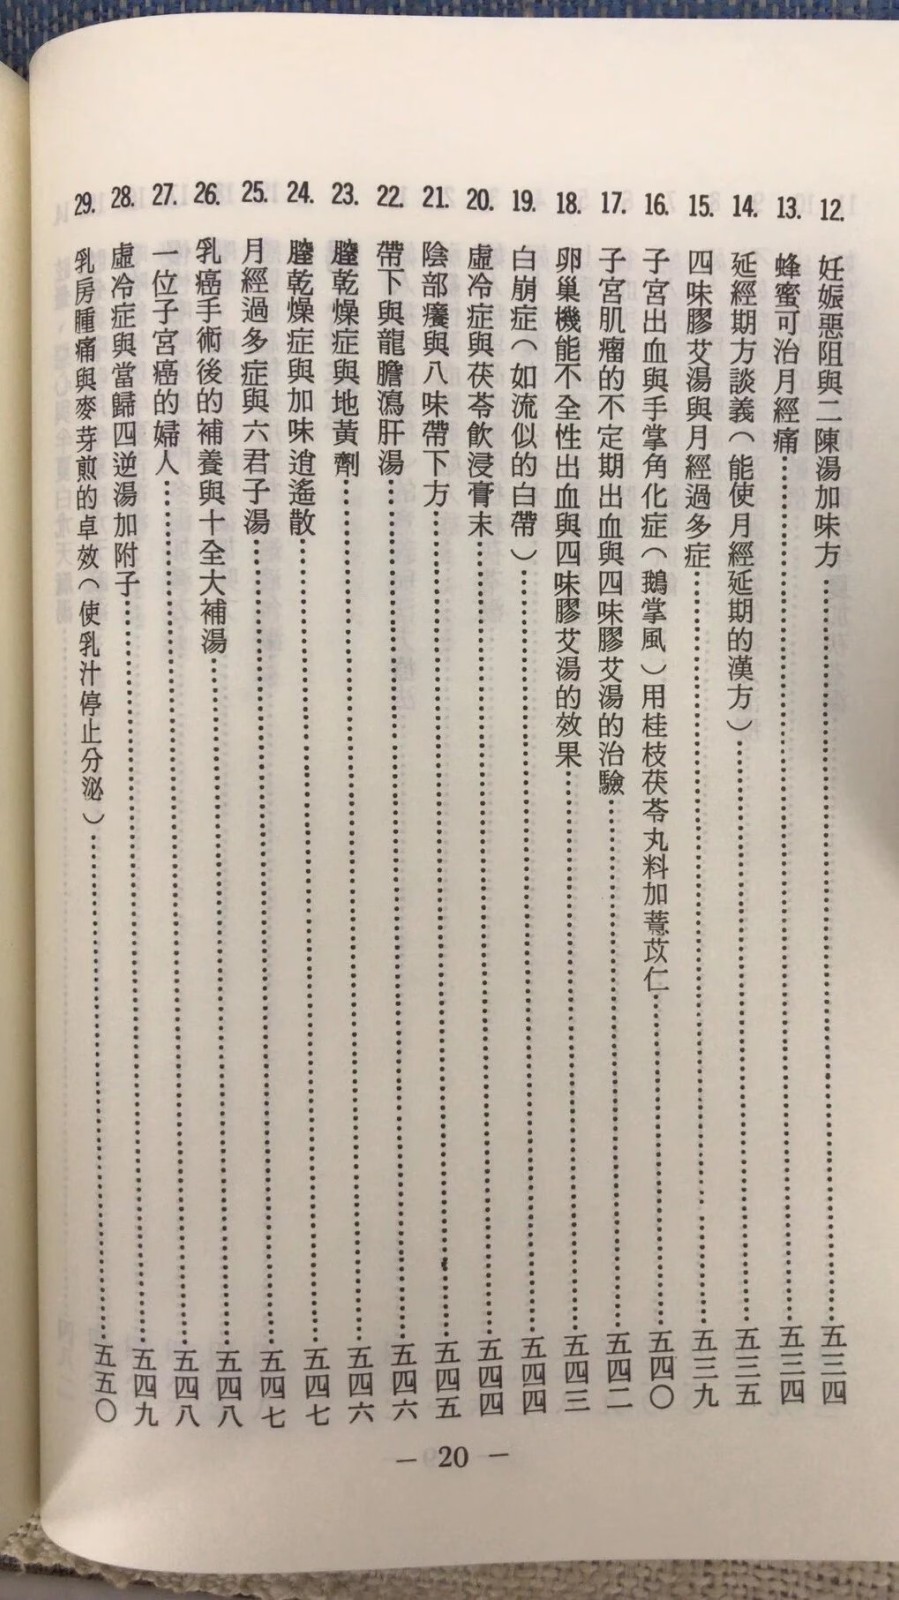 12. 妊娠惡阻與二陳湯加味方……五三四
13. 蜂蜜可治月經痛……五三四
14. 延經期方談義（能使月經延期的漢方）……五三五
15. 四味膠艾湯與月經過多症……五三九
16. 子宮出血與手掌角化症（鵝掌風）用桂枝茯苓丸料加薏苡仁……五四〇
17. 子宮肌瘤的不定期出血與四味膠艾湯的治驗……五四二
18. 卵巢機能不全性出血與四味膠艾湯的效果……五四三
19. 白崩症（如流似的白帶）……五四四
20. 虛冷症與茯苓飲浸膏末……五四四
21. 陰部癢與八味帶下方……五四五
22. 帶下與龍膽瀉肝湯……五四六
23. 膣乾燥症與地黃劑……五四六
24. 膣乾燥症與加味逍遙散……五四七
25. 月經過多症與六君子湯……五四七
26. 乳癌手術後的補養與十全大補湯……五四八
27. 一位子宮癌的婦人……五四八
28. 虛冷症與當歸四逆湯加附子……五四九
29. 乳房腫痛與麥芽煎的卓效（使乳汁停止分泌）……五五〇
— 20 —